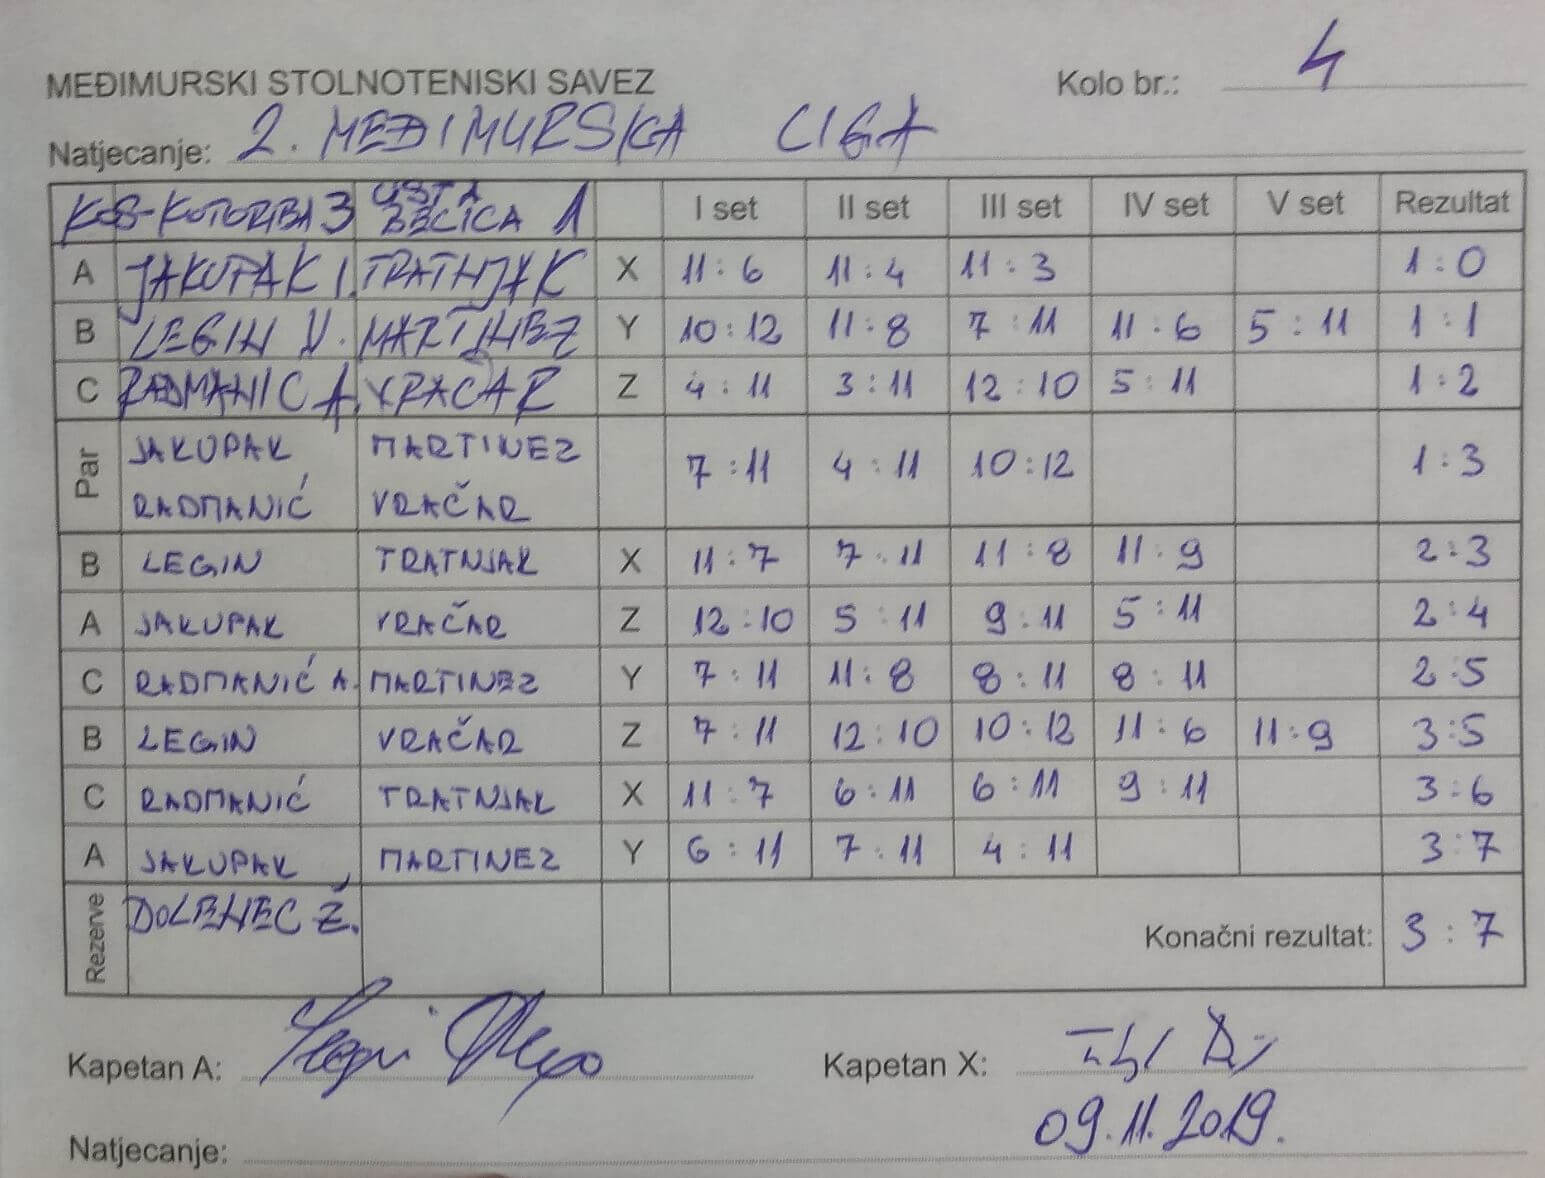 MEĐIMURSKI STOLNOTENISKI SAVEZ Kolo br.: 4
Natjecanje: 2. MEĐIMURSKA LIGA
KOB-KOTORIBA 3 BELICA 1 I set II set III set IV set V set Rezultat
A JAKUPAK I. TRATNJAK X 11:6 11:4 11:3 1:0
B LEGIN V. MARTINEZ Y 10:12 11:8 7:11 11:6 5:11 1:1
C RADMANIĆ A. VRAČAR Z 4:11 3:11 12:10 5:11 1:2
Par JAKUPAK MARTINEZ 7:11 4:11 10:12 1:3
RADMANIĆ VRAČAR
B LEGIN TRATNJAK X 11:7 7:11 11:8 11:9 2:3
A JAKUPAK VRAČAR Z 12:10 5:11 9:11 5:11 2:4
C RADMANIĆ A. MARTINEZ Y 7:11 11:8 8:11 8:11 2:5
B LEGIN VRAČAR Z 7:11 12:10 10:12 11:6 11:9 3:5
C RADMANIĆ TRATNJAK X 11:7 6:11 6:11 9:11 3:6
A JAKUPAK MARTINEZ Y 6:11 7:11 4:11 3:7
Rezerve DOLENEC Ž. Konačni rezultat: 3:7
Kapetan A: Kapetan X:
09.11.2019.
Natjecanje: